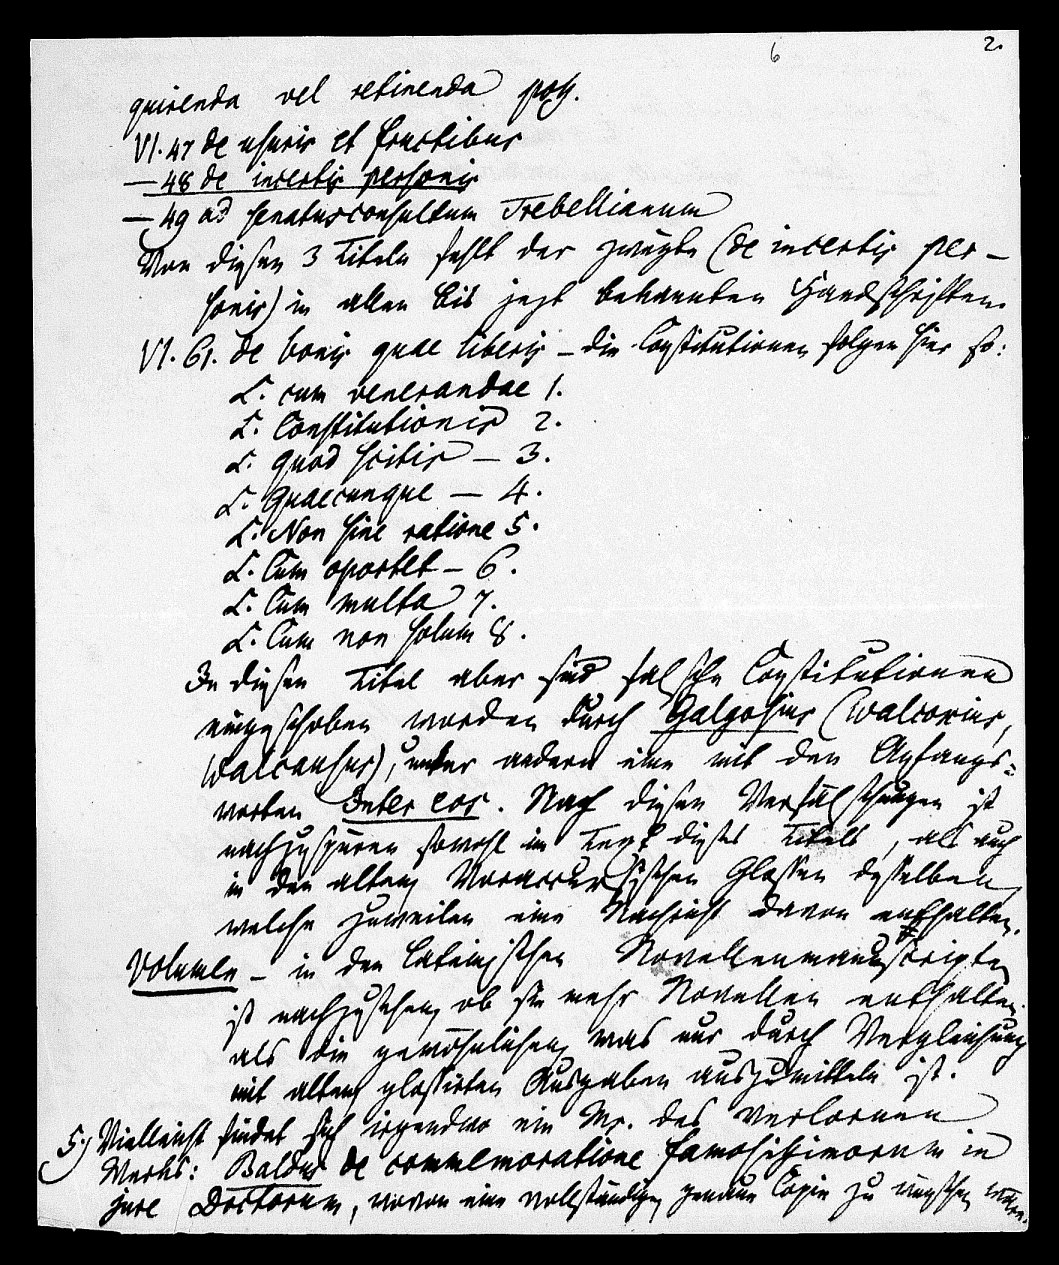 6 2.
quirenda vel retinenda poss.
VI. 47 de usuris et fructibus
— 48 de incertis personis
— 49 ad senatusconsultum Trebellianum
Von diesen 3 Titeln fehlt der zweyte (de incertis per-
sonis) in allen bis jezt bekannten Handschriften.
VI. 61. de bonis quae liberis – die Constitutionen folgen hier so:
L. cum venerandae 1.
L. Constitutionis 2.
L. quod scitis — 3.
L. Quaecunque — 4.
L. Non sine ratione 5.
L. Cum oportet — 6.
L. Cum multa 7.
L. Cum non solum 8.
In diesen Titel aber sind falsche Constitutionen
eingeschoben worden durch Galgosius (Walcovius,
Walcausus), unter andern eine mit den Anfangs-
worten Inter eos. Nach diesen Verfälschungen ist
nachzuspüren sowohl im Text dieses Titels, als auch
in den alten Voraccursischen Glossen desselben,
welche zuweilen eine Nachricht davon enthalten.
Volumen – in den lateinischen Novellenmanuscripten
ist nachzusehen, ob sie mehr Novellen enthalten
als die gewöhnlichen, was nur durch Vergleichung
mit alten glossirten Ausgaben auszumitteln ist.
5.) Vielleicht findet sich irgendwo ein Ms. des verlornen
Werks: Baldus de commemoratione famosissimorum in
jure Doctorum, wovon eine vollständige, genaue Copie zu wünschen wäre.